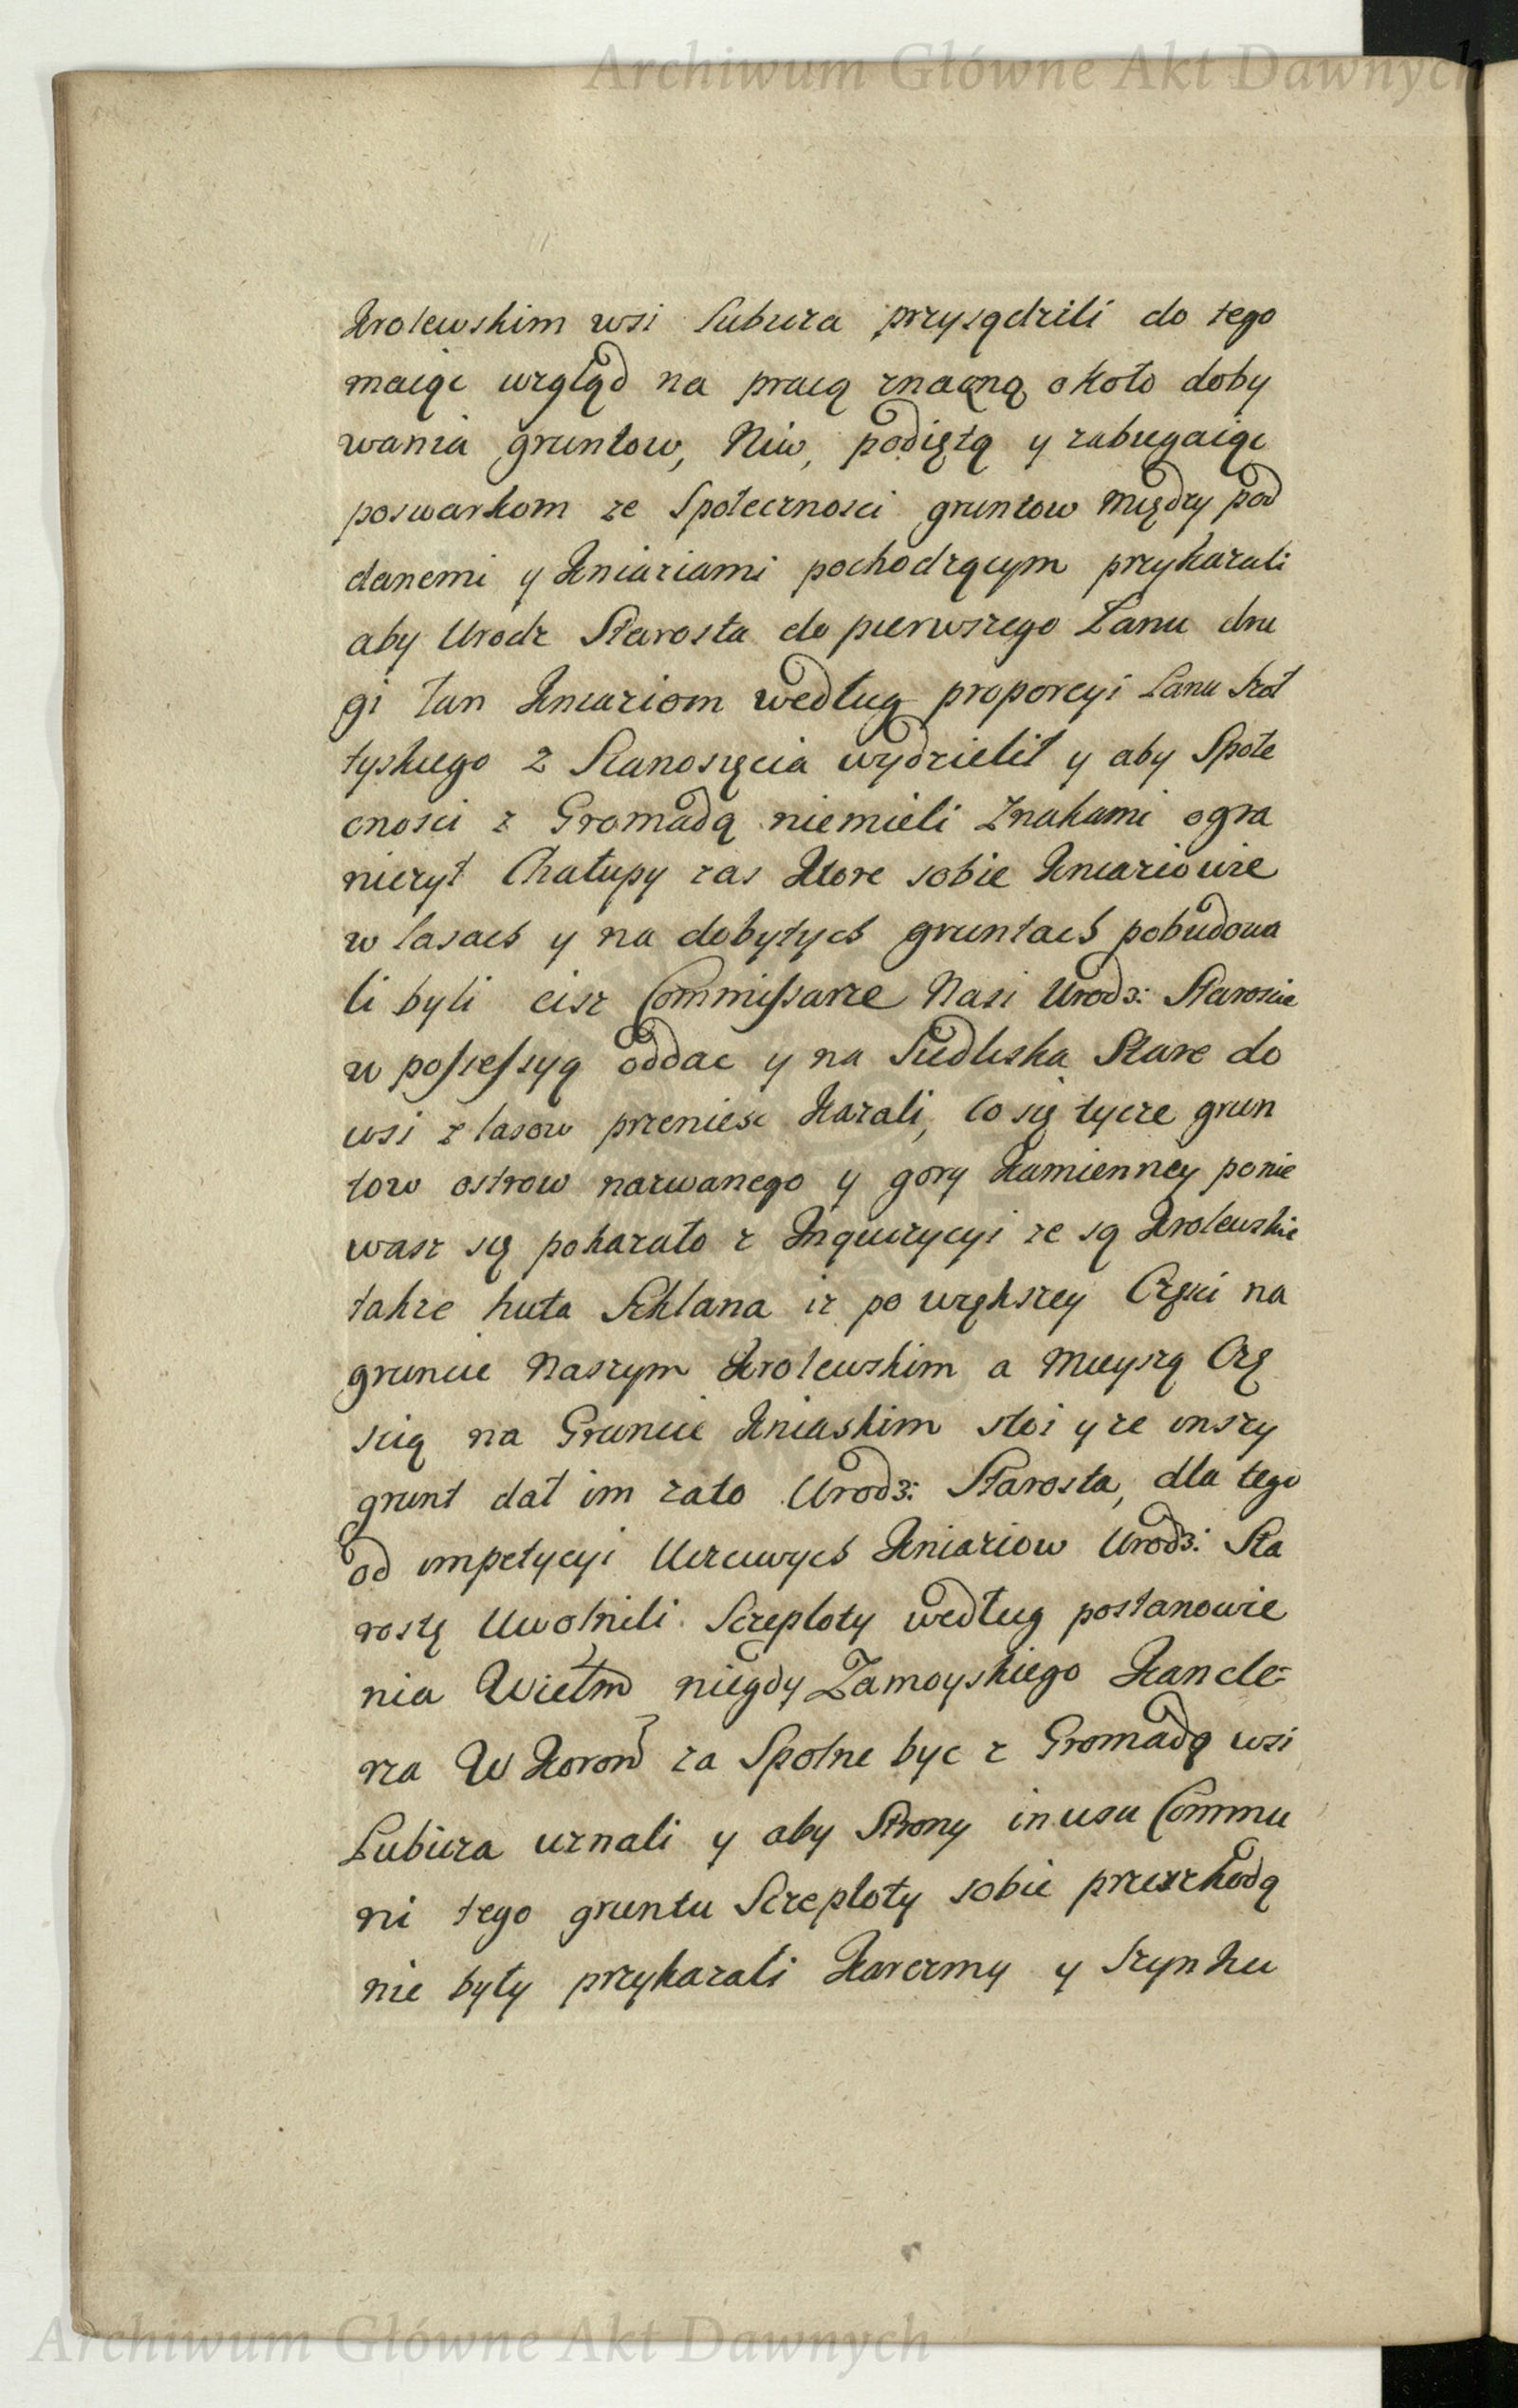 Archiwum Główne Akt Dawnych
Krolewskim wsi Lubicza przysądzili do tego
maiąc wzgląd na pracą znaczną około doby
wania gruntow, Niw, podiętą y zabiegaiąc
poswarkom ze Społecznosci gruntow między pod
danemi y Kniaziami pochodzącym przykazali
aby Urodz Starosta do pierwszego Łanu dru
gi łan Kniaziom według proporcyi Lanu Szoł
tyskiego z Stanosięcia wydzielił y aby Społe
cnosci z Gromadą niemieli Znakami ogra
niczył Chałupy zas Ktore sobie Kniaziowie
w lasach y na dobytych gruntach pobudowa
li byli cisz Commissarze Nasi Urodz: Staroscie
w possessyą oddac y na Siedliska Stare do
wsi z lasow przeniesc Kazali, Co się tycze grun
tow ostrow nazwanego y gory Kamienney ponie
wasz się pokazało z Inquizycyi ze są Krolewskie
także huta Szklana iz po większey Części na
gruncie Naszym Krolewskim a Mieyszą Czę
scią na Gruncie Kniaskim stoi y ze inszy
grunt dał im zato Urodz: Starosta, dla tego
od impetycyi Uczciwych Kniaziow Urodz: Sta
rostę Uwolnili. Szczepłoty według postanowie
nia Wielm niegdy Zamoyskiego Kancle=
rza W Koron za Spolne byc z Gromadą wsi
Lubicza uznali y aby Strony in usu Commu
ni tego gruntu Szczepłoty sobie przeszkodą
nie były przykazali Karczmy y Szynku
Archiwum Główne Akt Dawnych